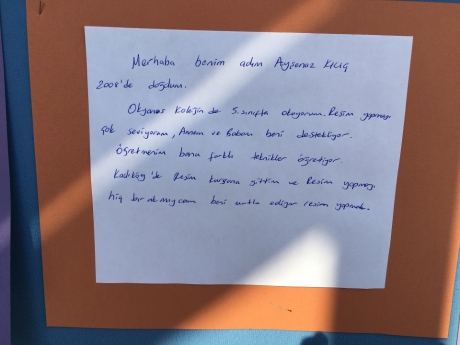 Merhaba benim adım Ayşenaz KILIÇ
2008'de doğdum.
Okyanus Kolejin de 5. sınıfta okuyorum. Resim yapmayı
çok seviyorum, Annem ve Babam beni destekliyor.
Öğretmenim bana farklı teknikler öğretiyor.
Kadıköy'de Resim kursuna gittim ve Resim yapmayı
hiç bırakmıycam beni mutlu ediyor resim yapmak.